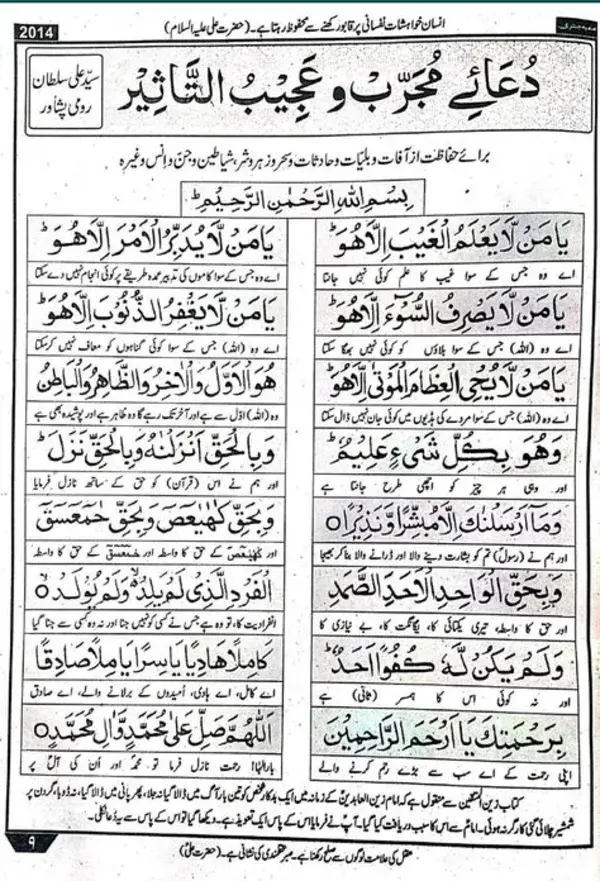 2014
انسان خواہشات نفسانی پر قابو رکھنے سے محفوظ رہتا ہے۔ (حضرت علی علیہ السلام)
دُعَائے مُجَرّب و عَجِیبُ التَّاثِیر
سیّد علی سلطان
رومی پشاور
برائے حفاظت از آفات و بلیّات و حادثات و سحر و زہر و شر، شیاطین و جنّ و انس وغیرہ
بِسْمِ اللهِ الرَّحْمٰنِ الرَّحِيْمِ ط
يَا مَنْ لَا يَعْلَمُ الْغَيْبَ اِلَّا هُوَ ط
يَا مَنْ لَا يُدَبِّرُ الْاَمْرَ اِلَّا هُوَ ط
اے وہ جس کے سوا غیب کا علم کوئی نہیں جانتا
اے وہ جس کے سوا کاموں کی تدبیر عمدہ طریقے پر کوئی انجام نہیں دے سکتا
يَا مَنْ لَا يَصْرِفُ السُّوْٓءَ اِلَّا هُوَ ط
يَا مَنْ لَا يَغْفِرُ الذُّنُوْبَ اِلَّا هُوَ ط
اے وہ (اللہ) جس کے سوا بلاؤں کو کوئی نہیں بھگا سکتا
اے وہ (اللہ) جس کے سوا کوئی گناہوں کو معاف نہیں کر سکتا
يَا مَنْ لَا يُحْيِ الْعِظَامَ الْمَوْتٰى اِلَّا هُوَ ط
هُوَ الْاَوَّلُ وَالْاٰخِرُ وَالظَّاهِرُ وَالْبَاطِنُ
اے وہ (اللہ) جس کے سوا مردے کی ہڈیوں میں کوئی جان نہیں ڈال سکتا
وہ (اللہ) اوّل سے ہے اور آخر تک رہے گا وہ ظاہر ہے اور پوشیدہ بھی ہے
وَهُوَ بِكُلِّ شَيْءٍ عَلِيْمٌ ط
وَبِالْحَقِّ اَنْزَلْنٰهُ وَبِالْحَقِّ نَزَلَ ط
اور وہی ہر چیز کو اچھی طرح جانتا ہے
اور ہم نے اس (قرآن) کو حق کے ساتھ نازل فرمایا
وَمَا اَرْسَلْنٰكَ اِلَّا مُبَشِّرًا وَّنَذِيْرًا ○
وَبِحَقِّ كٓهٰيٰعٓصٓ وَبِحَقِّ حٰمٓعٓسٓقٓ
اور ہم نے (رسولؐ) تم کو بشارت دینے والا اور ڈرانے والا بنا کر بھیجا
اور کٓھٰیٰعٓصٓ کے حق کا واسطہ اور حٰمٓعٓسٓقٓ کے حق کا واسطہ
وَبِحَقِّ الْوَاحِدِ الْاَحَدِ الصَّمَدِ
الْفَرْدِ الَّذِيْ لَمْ يَلِدْ وَلَمْ يُوْلَدْ ○
اور حق کا واسطہ، تیری یکتائی کا، یگانگت کا، بے نیازی کا
انفرادیت کا، تو وہ ہے جس نے کسی کو نہیں جنا اور نہ وہ کسی سے جنا گیا
وَلَمْ يَكُنْ لَّهٗ كُفُوًا اَحَدٌ ط
كَامِلًا هَادِيًا يَاسِرًا يَامِلًا صَادِقًا
اور نہ کوئی اس کا ہمسر (ثانی) ہے
اے کامل، اے ہادی، اُمیدوں کے بر لانے والے، اے صادق
بِرَحْمَتِكَ يَا اَرْحَمَ الرَّاحِمِيْنَ
اَللّٰهُمَّ صَلِّ عَلٰى مُحَمَّدٍ وَّاٰلِ مُحَمَّدٍ ○
اپنی رحمت کے اے سب سے بڑے رحم کرنے والے
بارالٰہا! رحمت نازل فرما تو محمدؐ اور اُن کی آلؑ پر
کتاب زین المتقین سے منقول ہے کہ امام زین العابدینؑ کے زمانہ میں ایک بدکار شخص کو تین بار آگ میں ڈالا گیا نہ جلا، پھر پانی میں ڈالا گیا، نہ ڈوبا، گردن پر
شمشیر چلائی گئی کارگر نہ ہوئی۔ امامؑ سے اس کا سبب دریافت کیا گیا۔ آپؑ نے فرمایا اس کے پاس ایک تعویذ ہے۔ دیکھا گیا تو اس کے پاس سے یہ دُعا نکلی۔
۹
عقل کی علامت لوگوں سے صلح رکھنا ہے۔ صبر عقلمندی کی نشانی ہے۔ (حضرت علیؑ)